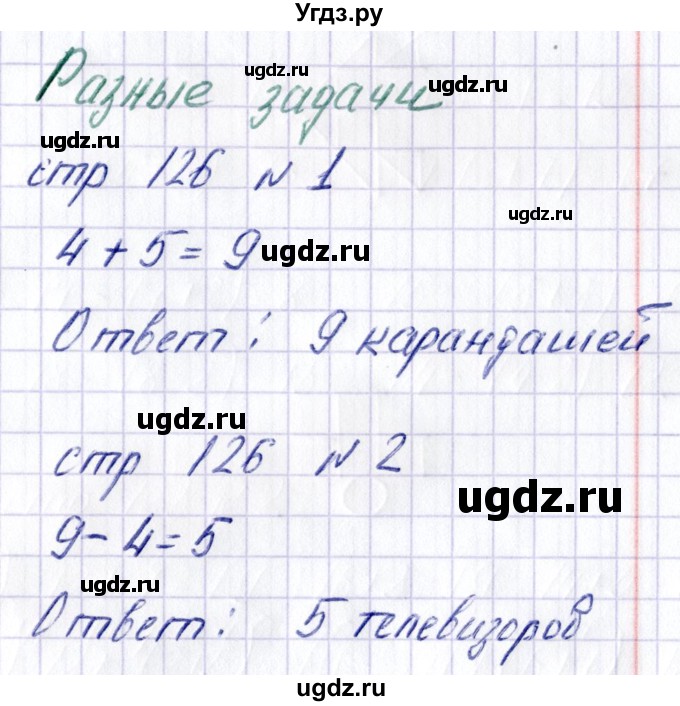 Угдз.ру
ugdz.ru
Разные задачи
ugdz.ru
ugdz.ru
стр 126 № 1
ugdz.ru
4 + 5 = 9
ugdz.ru
Ответ: 9 карандашей
ugdz.ru
стр 126 № 2
ugdz.ru
9 - 4 = 5
ugdz.ru
Ответ: 5 телевизоров
ugdz.ru